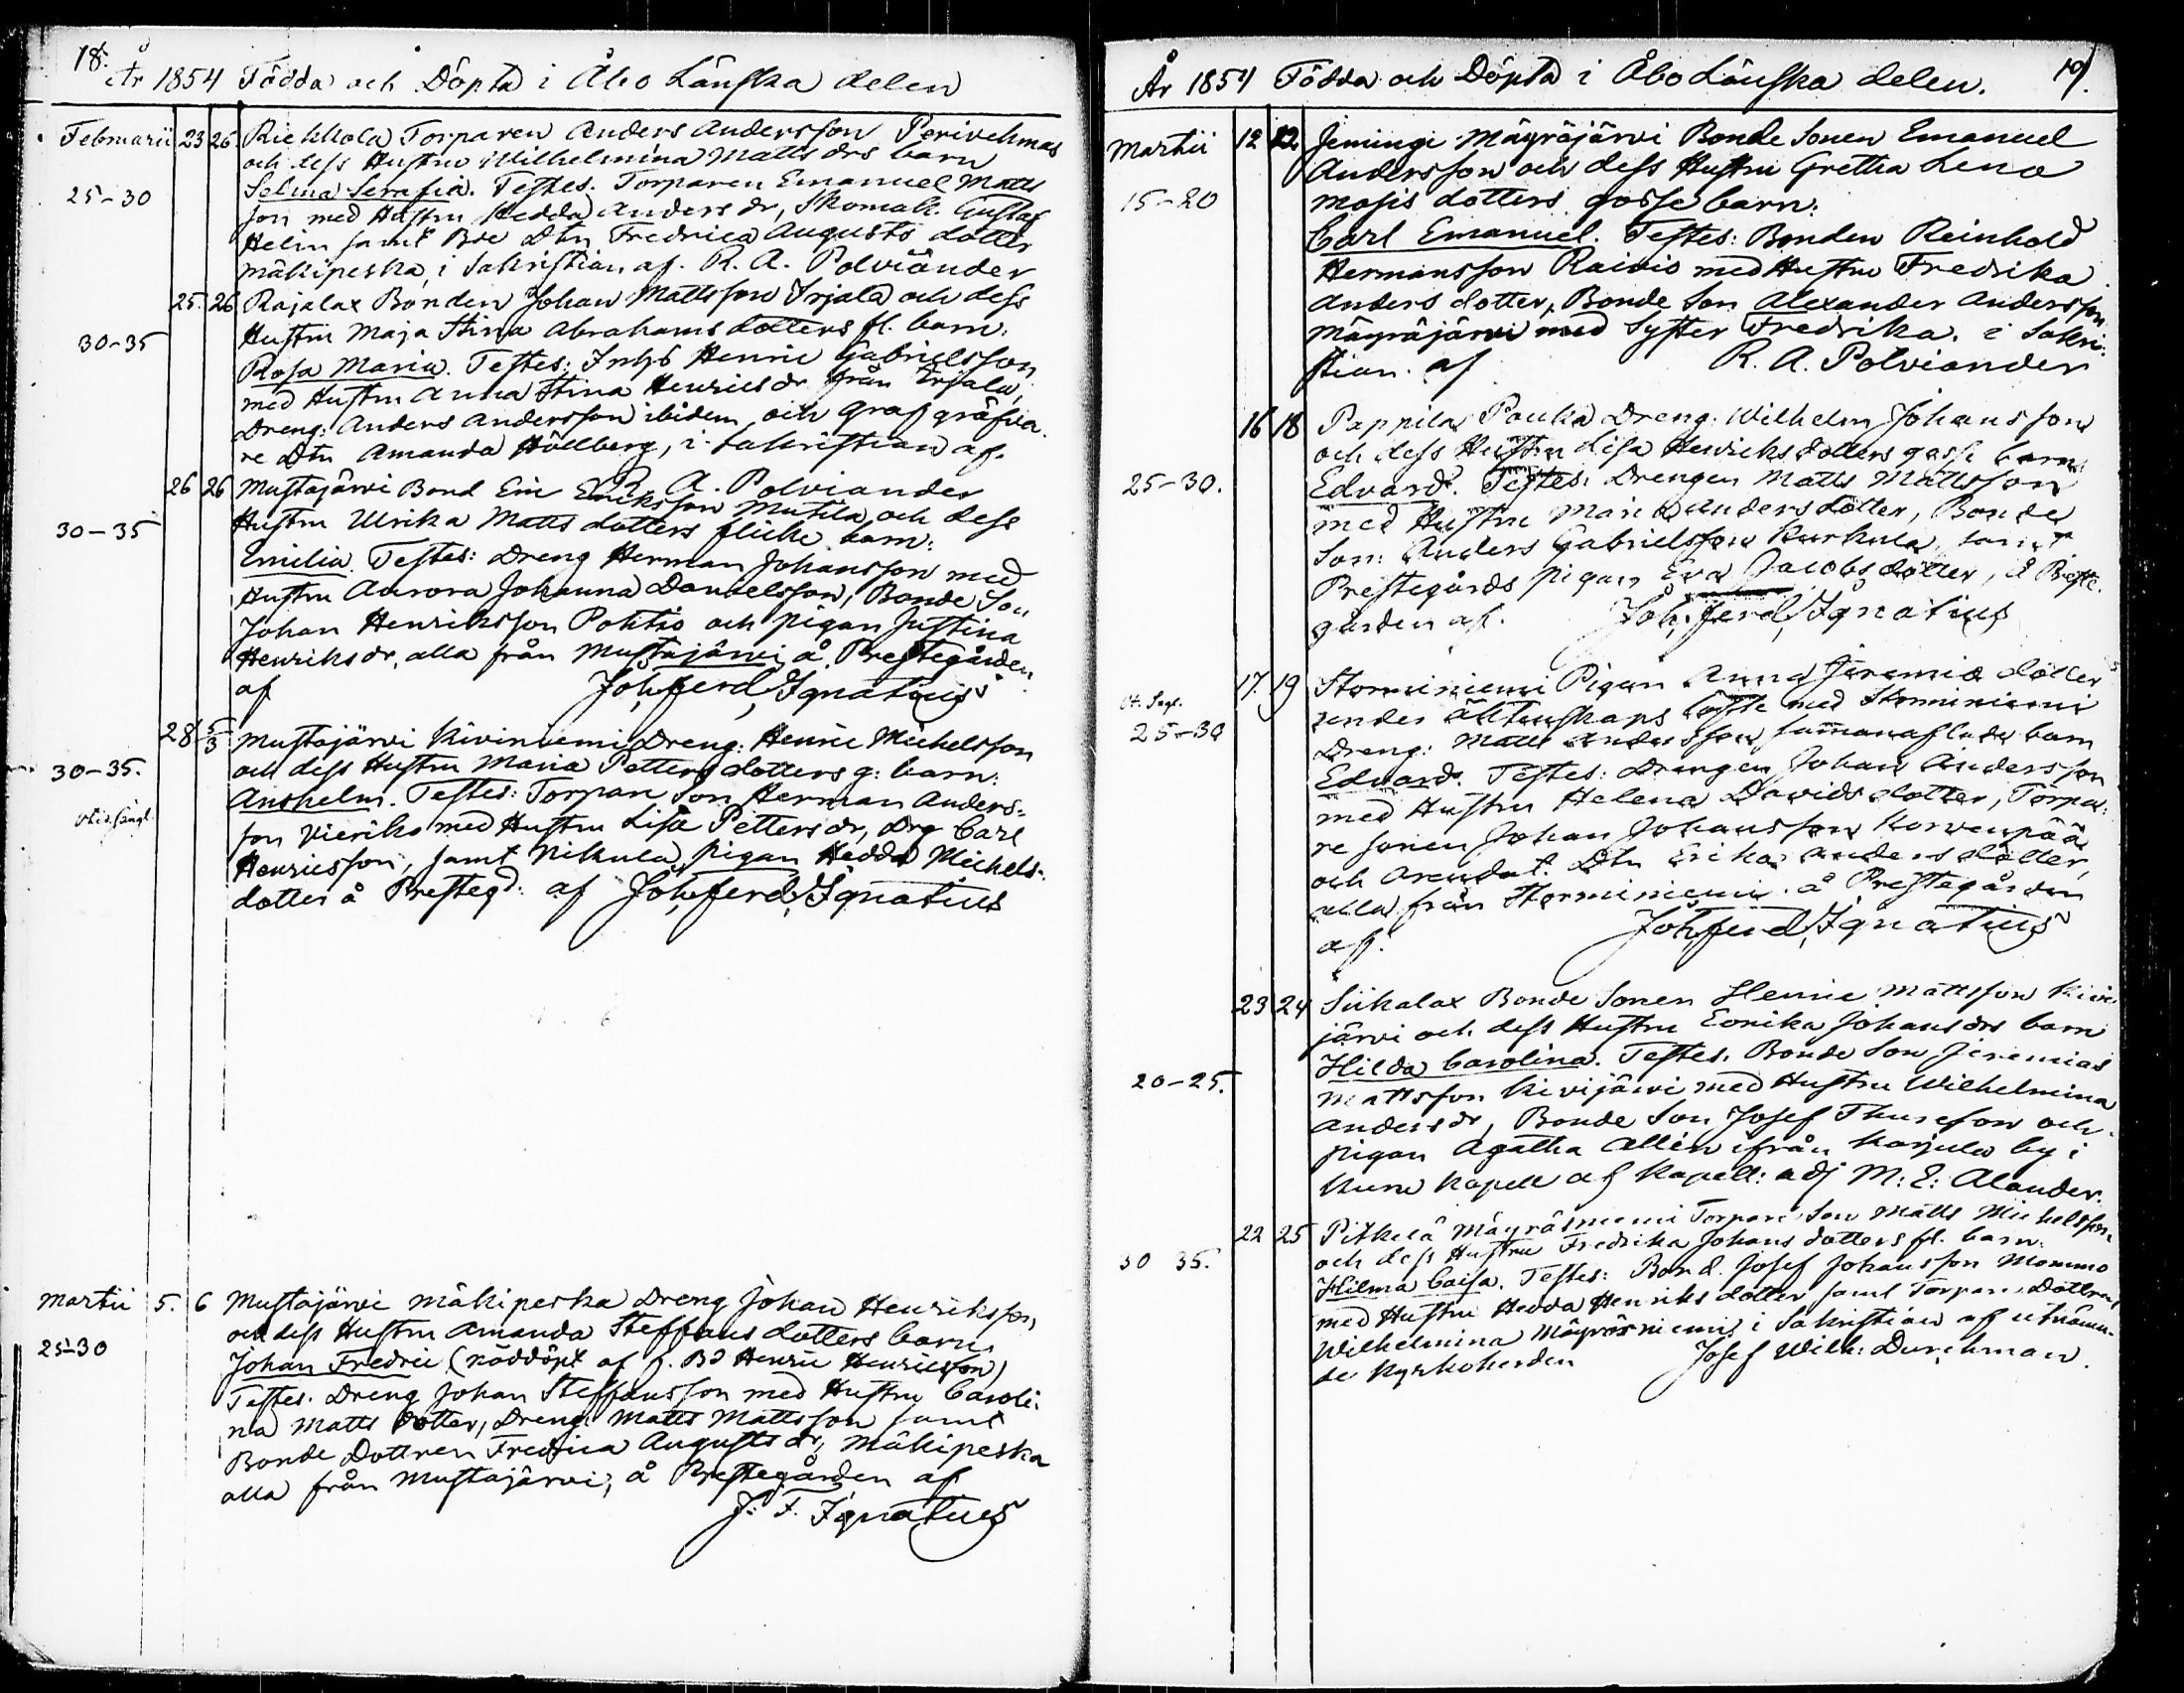 18.
År 1854 Födda och Döpta i Åbo Länska delen
Februarii 23 26 Riekkola Torparen Anders Andersson Perivehmas
och dess Hustru Wilhelmina Matts drs barn
25-30 Selina Serafia. Testes. Torparen Emanuel Matts
son med Hustru Hedda Anders dr, Skomak. Gustaf
Helin samt Bde Dtn Fredrica Augusts dotter
Mäkipeska, i Sakristian af. R. A. Polviander
25. 26 Rajalax Bonden Johan Mattsson Irjala och dess
30-35 Hustru Maja Stina Abrahams dotters fl. barn.
Rosa Maria. Testes: Inhs Henric Gabrielsson
med Hustru Anna Stina Henrics dr från Erjala,
Dreng: Anders Andersson ibidem, och Graf gräfva
re Dtn Amanda Hällberg, i Sakristian af.
R. A. Polviander
26 26 Mustajärvi Bond Eric Eriksson Mutila och dess
30-35 Hustru Ulrika Matts dotters flicke barn:
Emilia. Testes: Dreng Herman Johansson med
Hustru Aurora Johanna Danielsson, Bonde Son
Johan Henriksson Pohtio och pigan Justina
Henriks dr, alla från Mustajärvi å Prestegården
af Joh. ferd. Ignatius
28 5/3 Mustajärvi Kiviniemi Dreng: Henric Michelsson
30-35. och dess Hustru Maria Petters dotters g: barn:
Anshelm. Testes: Torpare Son Herman Anders-
son Vieriko med Hustru Lisa Petters dr, Drg Carl
Henricsson, samt Nikula pigan Hedda Michels-
dotter å Presteg:d af Joh. ferd. Ignatius
Martii 5. 6 Mustajärvi Mäkipeska Dreng Johan Henriksson
och dess Hustru Amanda Steffans dotters barn
25-30 Johan Fredric (nöddöpt af f. Bd Henric Henricsson)
Testes. Dreng Johan Steffansson med Hustru Caroli-
na Matts dotter, Dreng Matts Mattsson samt
Bonde Dottren Fredrica Augusts dr, Mäkipeska
alla från Mustajärvi, å Prestegården af
J. F. Ignatius
År 1854 Födda och Döpta i Åbo Länska delen. 19.
Martii 12 12. Jeminge Mäyräjärvi Bonde Sonen Emanuel
Andersson och dess Hustru Gretha Lena
15-20 Mosis dotters gosse barn:
Carl Emanuel. Testes: Bonden Reinhold
Hermansson Raivio med Hustru Fredrika
Anders dotter, Bonde Son Alexander Andersson
Mäyräjärvi med Syster Fredrika. i Sakri-
stian. af R. A. Polviander
16 18 Pappila Paulia Dreng: Wilhelm Johansson
och dess Hustru Lisa Henriks dotters gosse barn:
25-30. Edvard. Testes: Drengen Matts Mattsson
med Hustru Maria Anders dotter, Bonde
Son: Anders Gabrielsson Kurkula, samt
Prestegårds pigan Eva Jacobs dotter, å Preste-
gården af. Joh. ferd. Ignatius
17. 19 Storminiemi Pigan Anna Jeremie dotters
under äktenskaps löfte med Storminiemi
25-30 Dreng: Matts Andersson sammanaflade barn
Edvard. Testes: Drengen Johan Andersson
med Hustru Helena Davids dotter, Torpa-
re sonen Johan Johansson Korvenpää
och Arendat. Dtn Erika Anders dotter,
alla från Storminiemi. å Prestegården
af. Joh. ferd. Ignatius
23 24 Siikalax Bonde Sonen Henric Mattsson Kivi-
järvi och dess Hustru Eonika Johans drs barn
Hilda Carolina. Testes. Bonde Son Jeremias
20-25. Mattsson Kivijärvi med Hustru Wilhelmina
Anders dr, Bonde Son Josef Thuresson och
pigan Agatha Allén ifrån Karjula by i
Kuru Kapell af Kapell: adj M: E: Alander.
22 25 Pitkelä Mäyräsniemi Torpare Son Matts Michelsson
30 35. och dess Hustru Fredrika Johans dotters fl. barn.
Hilma Caisa. Testes: Bond. Josef Johansson Mommo
med Hustru Hedda Henriks dotter samt Torpare Dottren
Wilhelmina Mäyräsniemi i Sakristian af utnämn-
de Kyrkoherden Josef Wilh: Durchman.